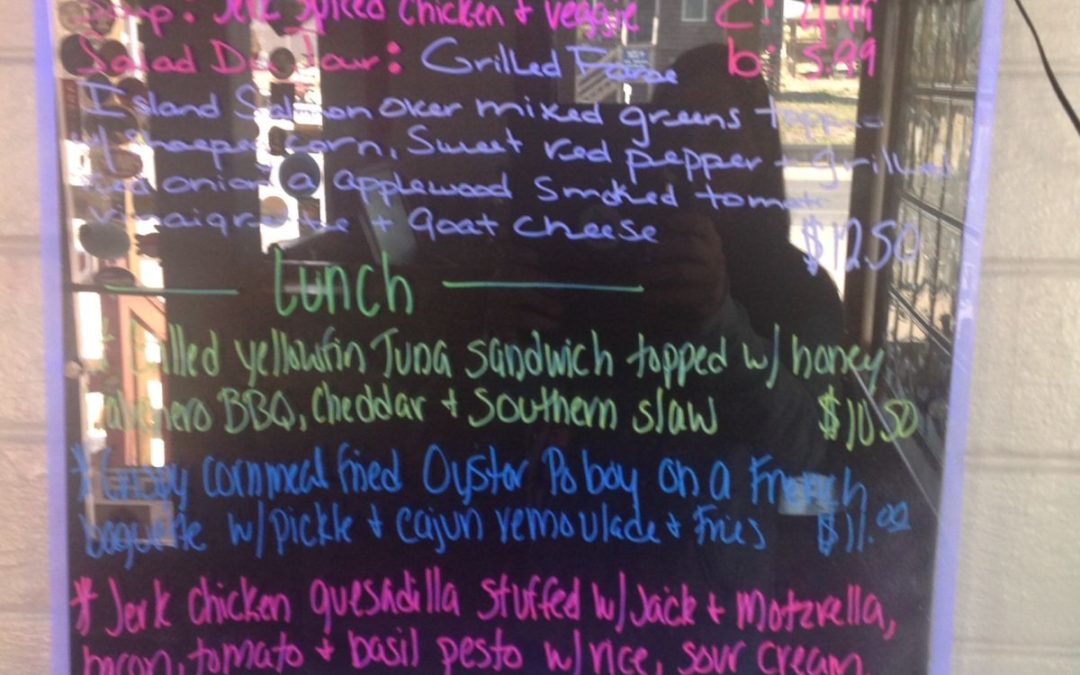 Jerk spiced chicken + veggie C: 4.99
Salad Du Jour: Grilled Faroe b: 5.99
Island Salmon over mixed greens topped
w/ corn, Sweet red pepper + grilled
red onion applewood smoked tomato
vinaigrette + goat cheese $12.50
Lunch
* Grilled yellowfin Tuna sandwich topped w/ honey
habenero BBQ, Cheddar + Southern slaw $10.50
* cornmeal fried Oyster Po boy on a French
baguette w/ pickle + cajun remoulade + Fries $11.00
* Jerk chicken quesadilla stuffed w/ Jack + Motzrella,
bacon, tomato + basil pesto w/ rice, sour cream,